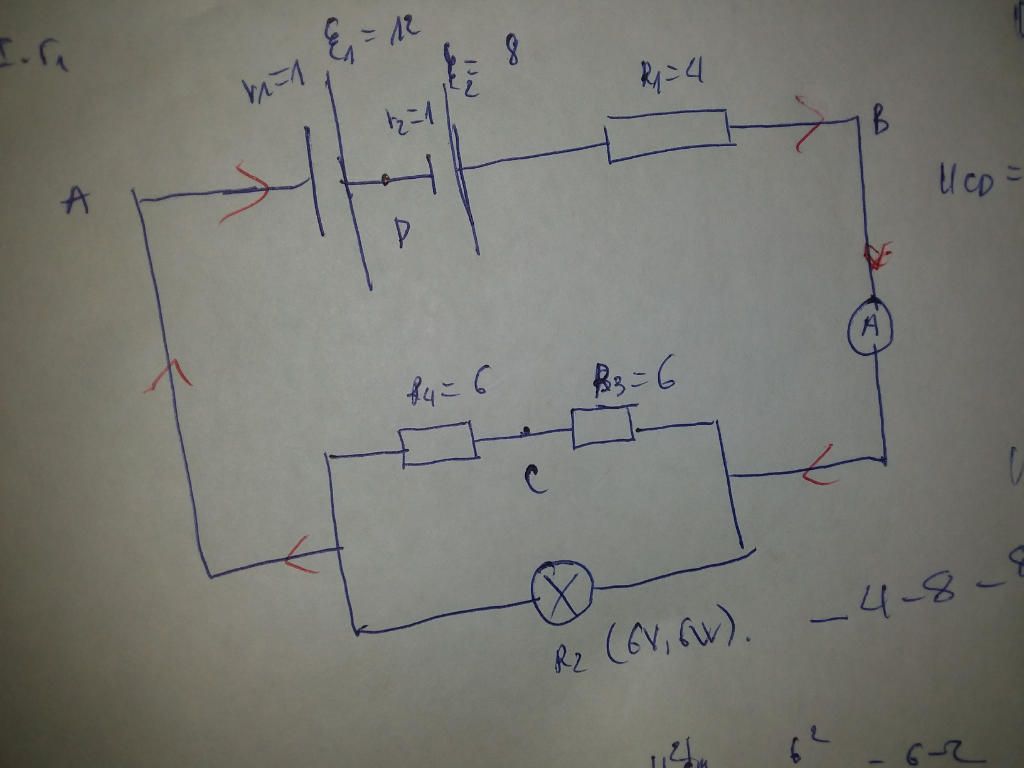 I.r₁
ξ₁ = 12
r₁=1
ξ₂= 8
r₂=1
R₁=4
A
B
D
UCD =
A
R₄= 6
R₃= 6
C
R₂ (6V, 6W).
- 4 - 8 - 8
6² - 6 Ω